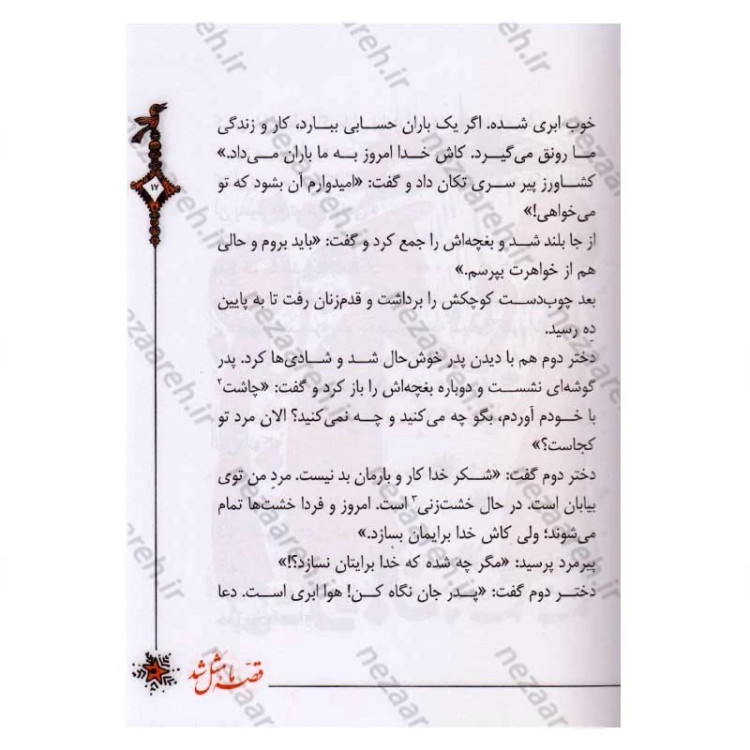 خوب ابری شده. اگر یک باران حسابی ببارد، کار و زندگی
ما رونق می‌گیرد. کاش خدا امروز به ما باران می‌داد.»
کشاورز پیر سری تکان داد و گفت: «امیدوارم آن بشود که تو
می‌خواهی!»
از جا بلند شد و بغچه‌اش را جمع کرد و گفت: «باید بروم و حالی
هم از خواهرت بپرسم.»
بعد چوب‌دست کوچکش را برداشت و قدم‌زنان رفت تا به پایین
دِه رسید.
دختر دوم هم با دیدن پدر خوش‌حال شد و شادی‌ها کرد. پدر
گوشه‌ای نشست و دوباره بغچه‌اش را باز کرد و گفت: «چاشت۲
با خودم آوردم، بگو چه می‌کنید و چه نمی‌کنید؟ الان مرد تو
کجاست؟»
دختر دوم گفت: «شکر خدا کار و بارمان بد نیست. مردِ من توی
بیابان است. در حال خشت‌زنی۳ است. امروز و فردا خشت‌ها تمام
می‌شوند؛ ولی کاش خدا برایمان بسازد.»
پیرمرد پرسید: «مگر چه شده که خدا برایتان نسازد؟!»
دختر دوم گفت: «پدر جان نگاه کن! هوا ابری است. دعا
۱۷
قصه ما مثل شد
nezaareh.ir
nezaareh.ir
nezaareh.ir
nezaareh.ir
nezaareh.ir
nezaareh.ir
nezaareh.ir
nezaareh.ir
nezaareh.ir